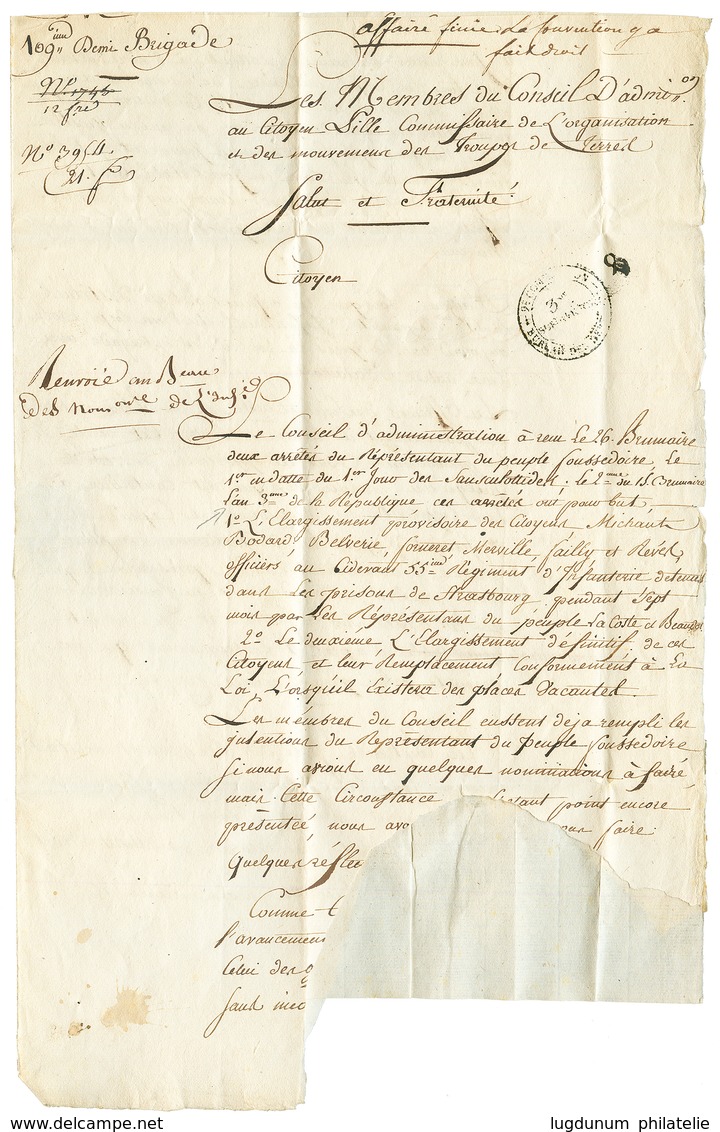 109ime Demi Brigade
affaire finie. La Convention y a
fait droit
N° 1745
12 fre
N° 3954.
21. f
Les Membres du Conseil D'admion.
au Citoyen Lille Commissaire de L'organisation
et des mouvemens des Troupes de Terres
Salut et Fraternité!
Citoyen
3me
BUREAU DES
Renvoié au Bureau
des Nomons de L'infie
Le Conseil d'administration à reçu Le 26. Brumaire
deux arretés du Réprésentant du peuple Foussedoire, Le
1er in datte du 1er Jour des Sansculottides. Le 2me du 15. Brumaire
L'an 3me de la République ces arretés ont pour but,
1° L'Elargissement provisoire des Citoyens Michaut
Bodard, Belverie, forneret Merville, failly et Revel,
officiers au Cidevant 55ime Régiment d'Infanterie détenus
dans Les prisons de Strasbourg, pendant sept
mois par Les Réprésentans du peuple La Coste et Beaudot
2° Le deuxième L'Elargissement définitif de ces
Citoyens et leur Remplacement Conformement à La
Loi, L'orsqu'il Existera des places Vacantes.
Les mêmbres du Conseil eussent deja rempli les
intentions du Représentant du peuple Foussedoire
Si nous avions eu quelques nominations à faire,
mais Cette Circonstance s'étant point encore
présentée, nous avo our faire.
Quelques réfle
Comme
l'avancemen
Celui des
sans inco
lugdunum philatelie